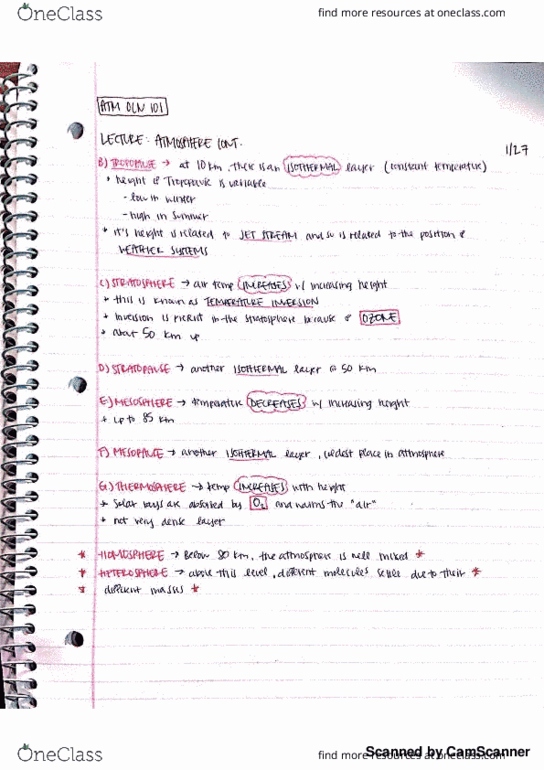 OneClass
find more resources at oneclass.com
ATM OCN 101
LECTURE: ATMOSPHERE CONT.
1/27
B) TROPOPAUSE → at 10 km, there is an ISOTHERMAL layer (constant temperature)
* height of Tropopause is variable
- low in winter
- high in summer
* it's height is related to JET STREAM and so is related to the position of
WEATHER SYSTEMS
C) STRATOSPHERE → air temp INCREASES w/ increasing height
* this is known as TEMPERATURE INVERSION
* Inversion is present in the stratosphere because of OZONE
* about 50 km up
D) STRATOPAUSE → another ISOTHERMAL layer @ 50 km
E) MESOSPHERE → temperature DECREASES w/ increasing height
* up to 85 km
F) MESOPAUSE → another ISOTHERMAL layer, coldest place in atmosphere
G) THERMOSPHERE → temp INCREASES with height
* Solar rays are absorbed by O₂ and warms the "air"
* not very dense layer
* HOMOSPHERE → Below 80 km, the atmosphere is well mixed *
* HETEROSPHERE → above this level, different molecules settle due to their *
* different masses *
Scanned by CamScanner
OneClass
find more resources at oneclass.com